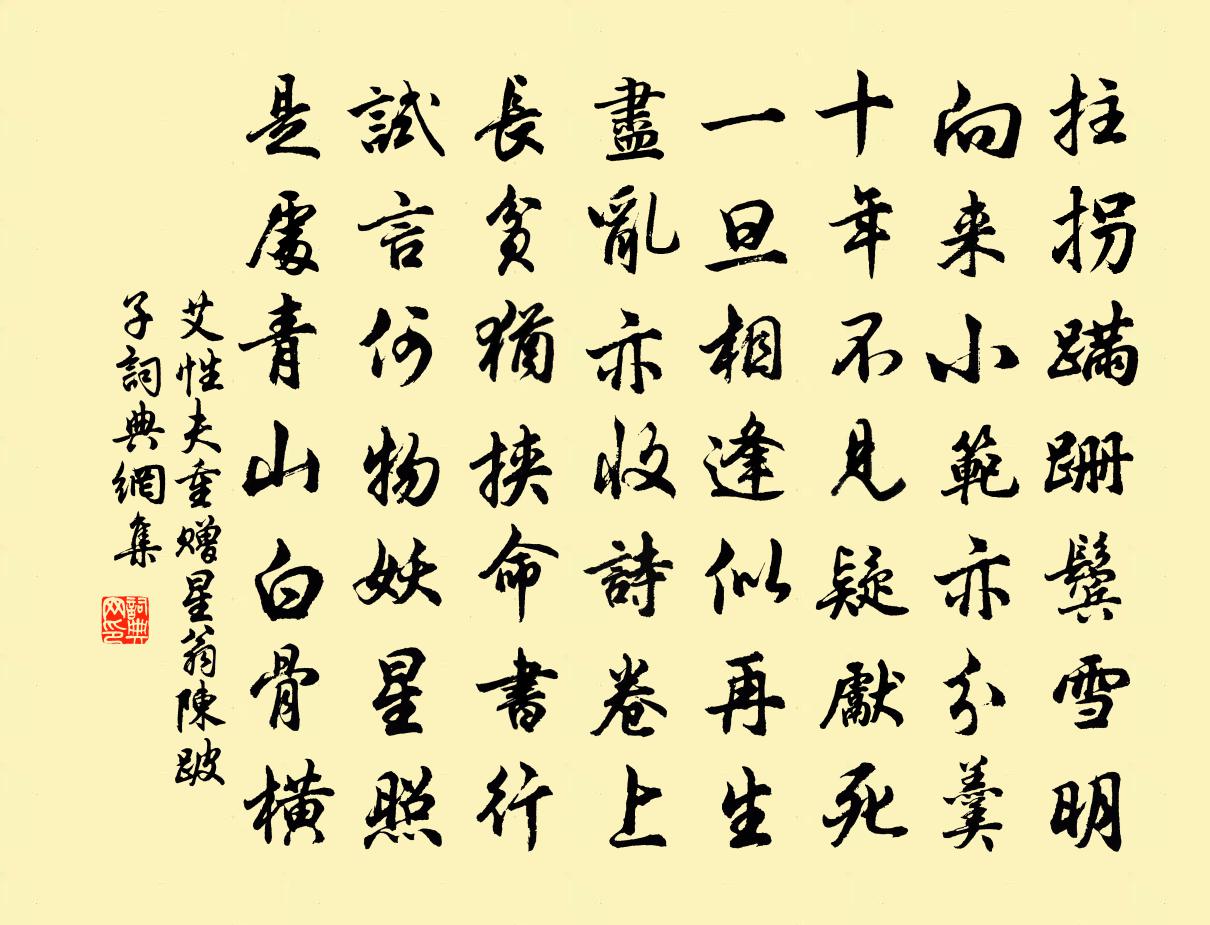 拄拐蹣跚鬓雪明
向来小範亦分羹
十年不見疑獻死
一旦相逢似再生
盡亂亦收詩卷上
長貧猶挾命書行
試言何物妖星照
是處青山白骨橫
艾性夫重赠星翁陳跛
子詞典網集
詞典网印